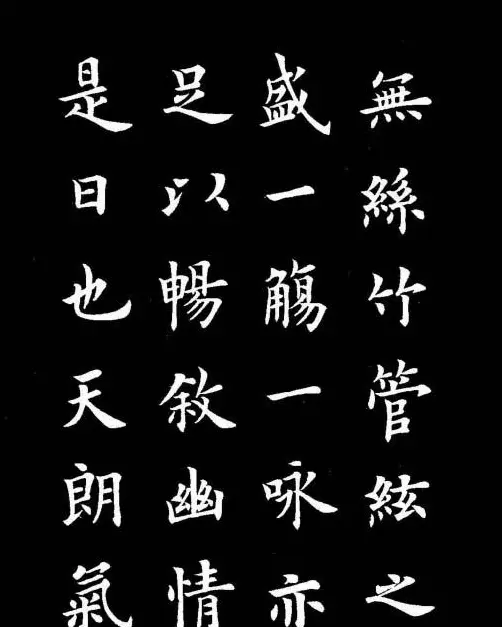 無絲竹管絃之
盛一觴一咏亦
足以暢敘幽情
是日也天朗氣